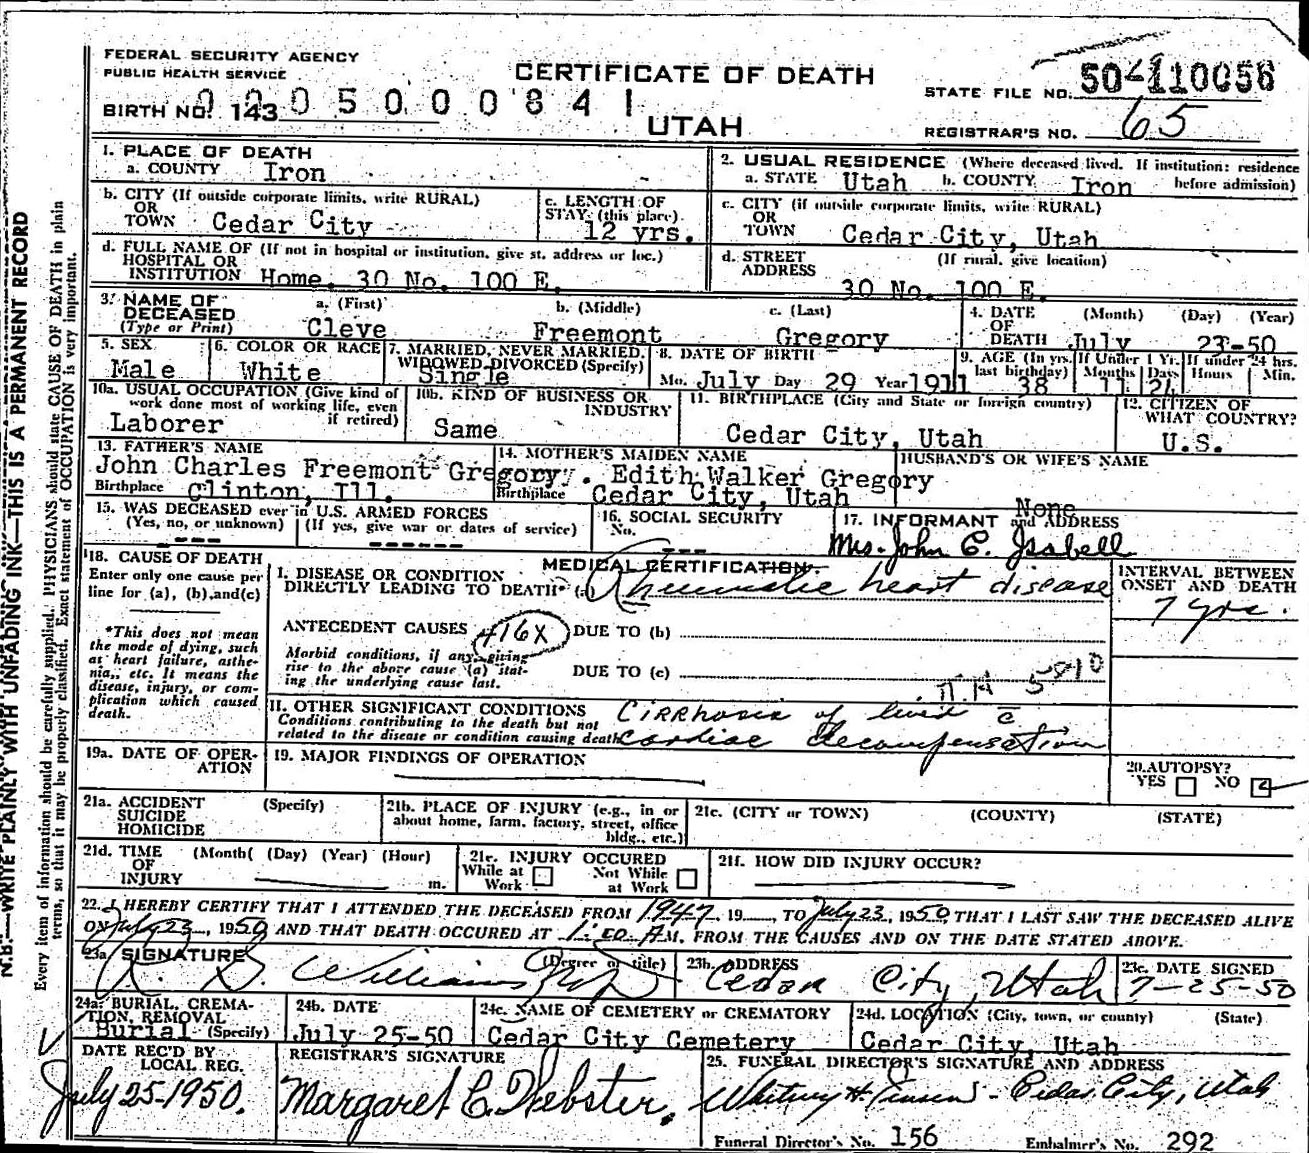 FEDERAL SECURITY AGENCY
PUBLIC HEALTH SERVICE
CERTIFICATE OF DEATH
STATE FILE NO. 50
BIRTH NO. 143 0005000841
UTAH
REGISTRAR'S NO. 65
1. PLACE OF DEATH
a. COUNTY Iron
2. USUAL RESIDENCE (Where deceased lived. If institution: residence before admission)
a. STATE Utah b. COUNTY Iron
b. CITY (If outside corporate limits, write RURAL)
OR
TOWN Cedar City
c. LENGTH OF
STAY (this place)
12 yrs.
c. CITY (if outside corporate limits, write RURAL)
OR
TOWN Cedar City, Utah
d. FULL NAME OF (If not in hospital or institution, give st. address or loc.)
HOSPITAL OR
INSTITUTION Home, 30 No. 100 E.
d. STREET (If rural, give location)
ADDRESS 30 No. 100 E.
3. NAME OF
DECEASED
(Type or Print)
a. (First) b. (Middle) c. (Last)
Cleve Freemont Gregory
4. DATE (Month) (Day) (Year)
OF
DEATH July 23-50
5. SEX
Male
6. COLOR OR RACE
White
7. MARRIED, NEVER MARRIED,
WIDOWED DIVORCED (Specify)
Single
8. DATE OF BIRTH
Mo. July Day 29 Year 1911
9. AGE (In yrs. last birthday) 38
If Under 1 Yr. Months 11 Days 24
If under 24 hrs. Hours Min.
10a. USUAL OCCUPATION (Give kind of
work done most of working life, even
if retired)
Laborer
10b. KIND OF BUSINESS OR
INDUSTRY
Same
11. BIRTHPLACE (City and State or foreign country)
Cedar City, Utah
12. CITIZEN OF
WHAT COUNTRY?
U.S.
13. FATHER'S NAME
John Charles Freemont Gregory
Birthplace Clinton, Ill.
14. MOTHER'S MAIDEN NAME
Edith Walker Gregory
Birthplace Cedar City, Utah
HUSBAND'S OR WIFE'S NAME
None
15. WAS DECEASED ever in U.S. ARMED FORCES
(Yes, no, or unknown) (If yes, give war or dates of service)
--- ------
16. SOCIAL SECURITY
No. ---
17. INFORMANT and ADDRESS
Mrs. John C. Isabell
18. CAUSE OF DEATH
Enter only one cause per
line for (a), (b), and (c)
*This does not mean
the mode of dying, such
as heart failure, asthe-
nia, etc. It means the
disease, injury, or com-
plication which caused
death.
MEDICAL CERTIFICATION
I. DISEASE OR CONDITION
DIRECTLY LEADING TO DEATH* (a) Rheumatic heart disease
INTERVAL BETWEEN
ONSET AND DEATH
7 yrs.
ANTECEDENT CAUSES 416X DUE TO (b)
Morbid conditions, if any, giving
rise to the above cause (a) stat-
ing the underlying cause last.
DUE TO (c)
II. OTHER SIGNIFICANT CONDITIONS
Conditions contributing to the death but not
related to the disease or condition causing death
Cirrhosis of liver c̄
cardiac decompensation
19a. DATE OF OPER-
ATION
19. MAJOR FINDINGS OF OPERATION
20. AUTOPSY?
YES NO
21a. ACCIDENT (Specify)
SUICIDE
HOMICIDE
21b. PLACE OF INJURY (e.g., in or
about home, farm, factory, street, office
bldg., etc.)
21c. (CITY or TOWN) (COUNTY) (STATE)
21d. TIME (Month( (Day) (Year) (Hour)
OF
INJURY m.
21e. INJURY OCCURED
While at Work Not While at Work
21f. HOW DID INJURY OCCUR?
22. I HEREBY CERTIFY THAT I ATTENDED THE DECEASED FROM 1947, 19__, TO July 23, 1950, THAT I LAST SAW THE DECEASED ALIVE
ON July 23, 1950 AND THAT DEATH OCCURED AT 1:00 A.M. FROM THE CAUSES AND ON THE DATE STATED ABOVE.
23a. SIGNATURE (Degree or title)
Williams
23b. ADDRESS
Cedar City, Utah
23c. DATE SIGNED
7-25-50
24a. BURIAL, CREMA-
TION, REMOVAL
Burial (Specify)
24b. DATE
July 25-50
24c. NAME OF CEMETERY or CREMATORY
Cedar City Cemetery
24d. LOCATION (City, town, or county) (State)
Cedar City, Utah
DATE REC'D BY
LOCAL REG.
July 25-1950.
REGISTRAR'S SIGNATURE
Margaret C. Webster.
25. FUNERAL DIRECTOR'S SIGNATURE AND ADDRESS
Whitney H. - Cedar City, Utah
Funeral Director's No. 156 Embalmer's No. 292
N.B.—WRITE PLAINLY WITH UNFADING INK—THIS IS A PERMANENT RECORD
Every item of information should be carefully supplied. PHYSICIANS should state CAUSE OF DEATH in plain
terms, so that it may be properly classified. Exact statement of OCCUPATION is very important.